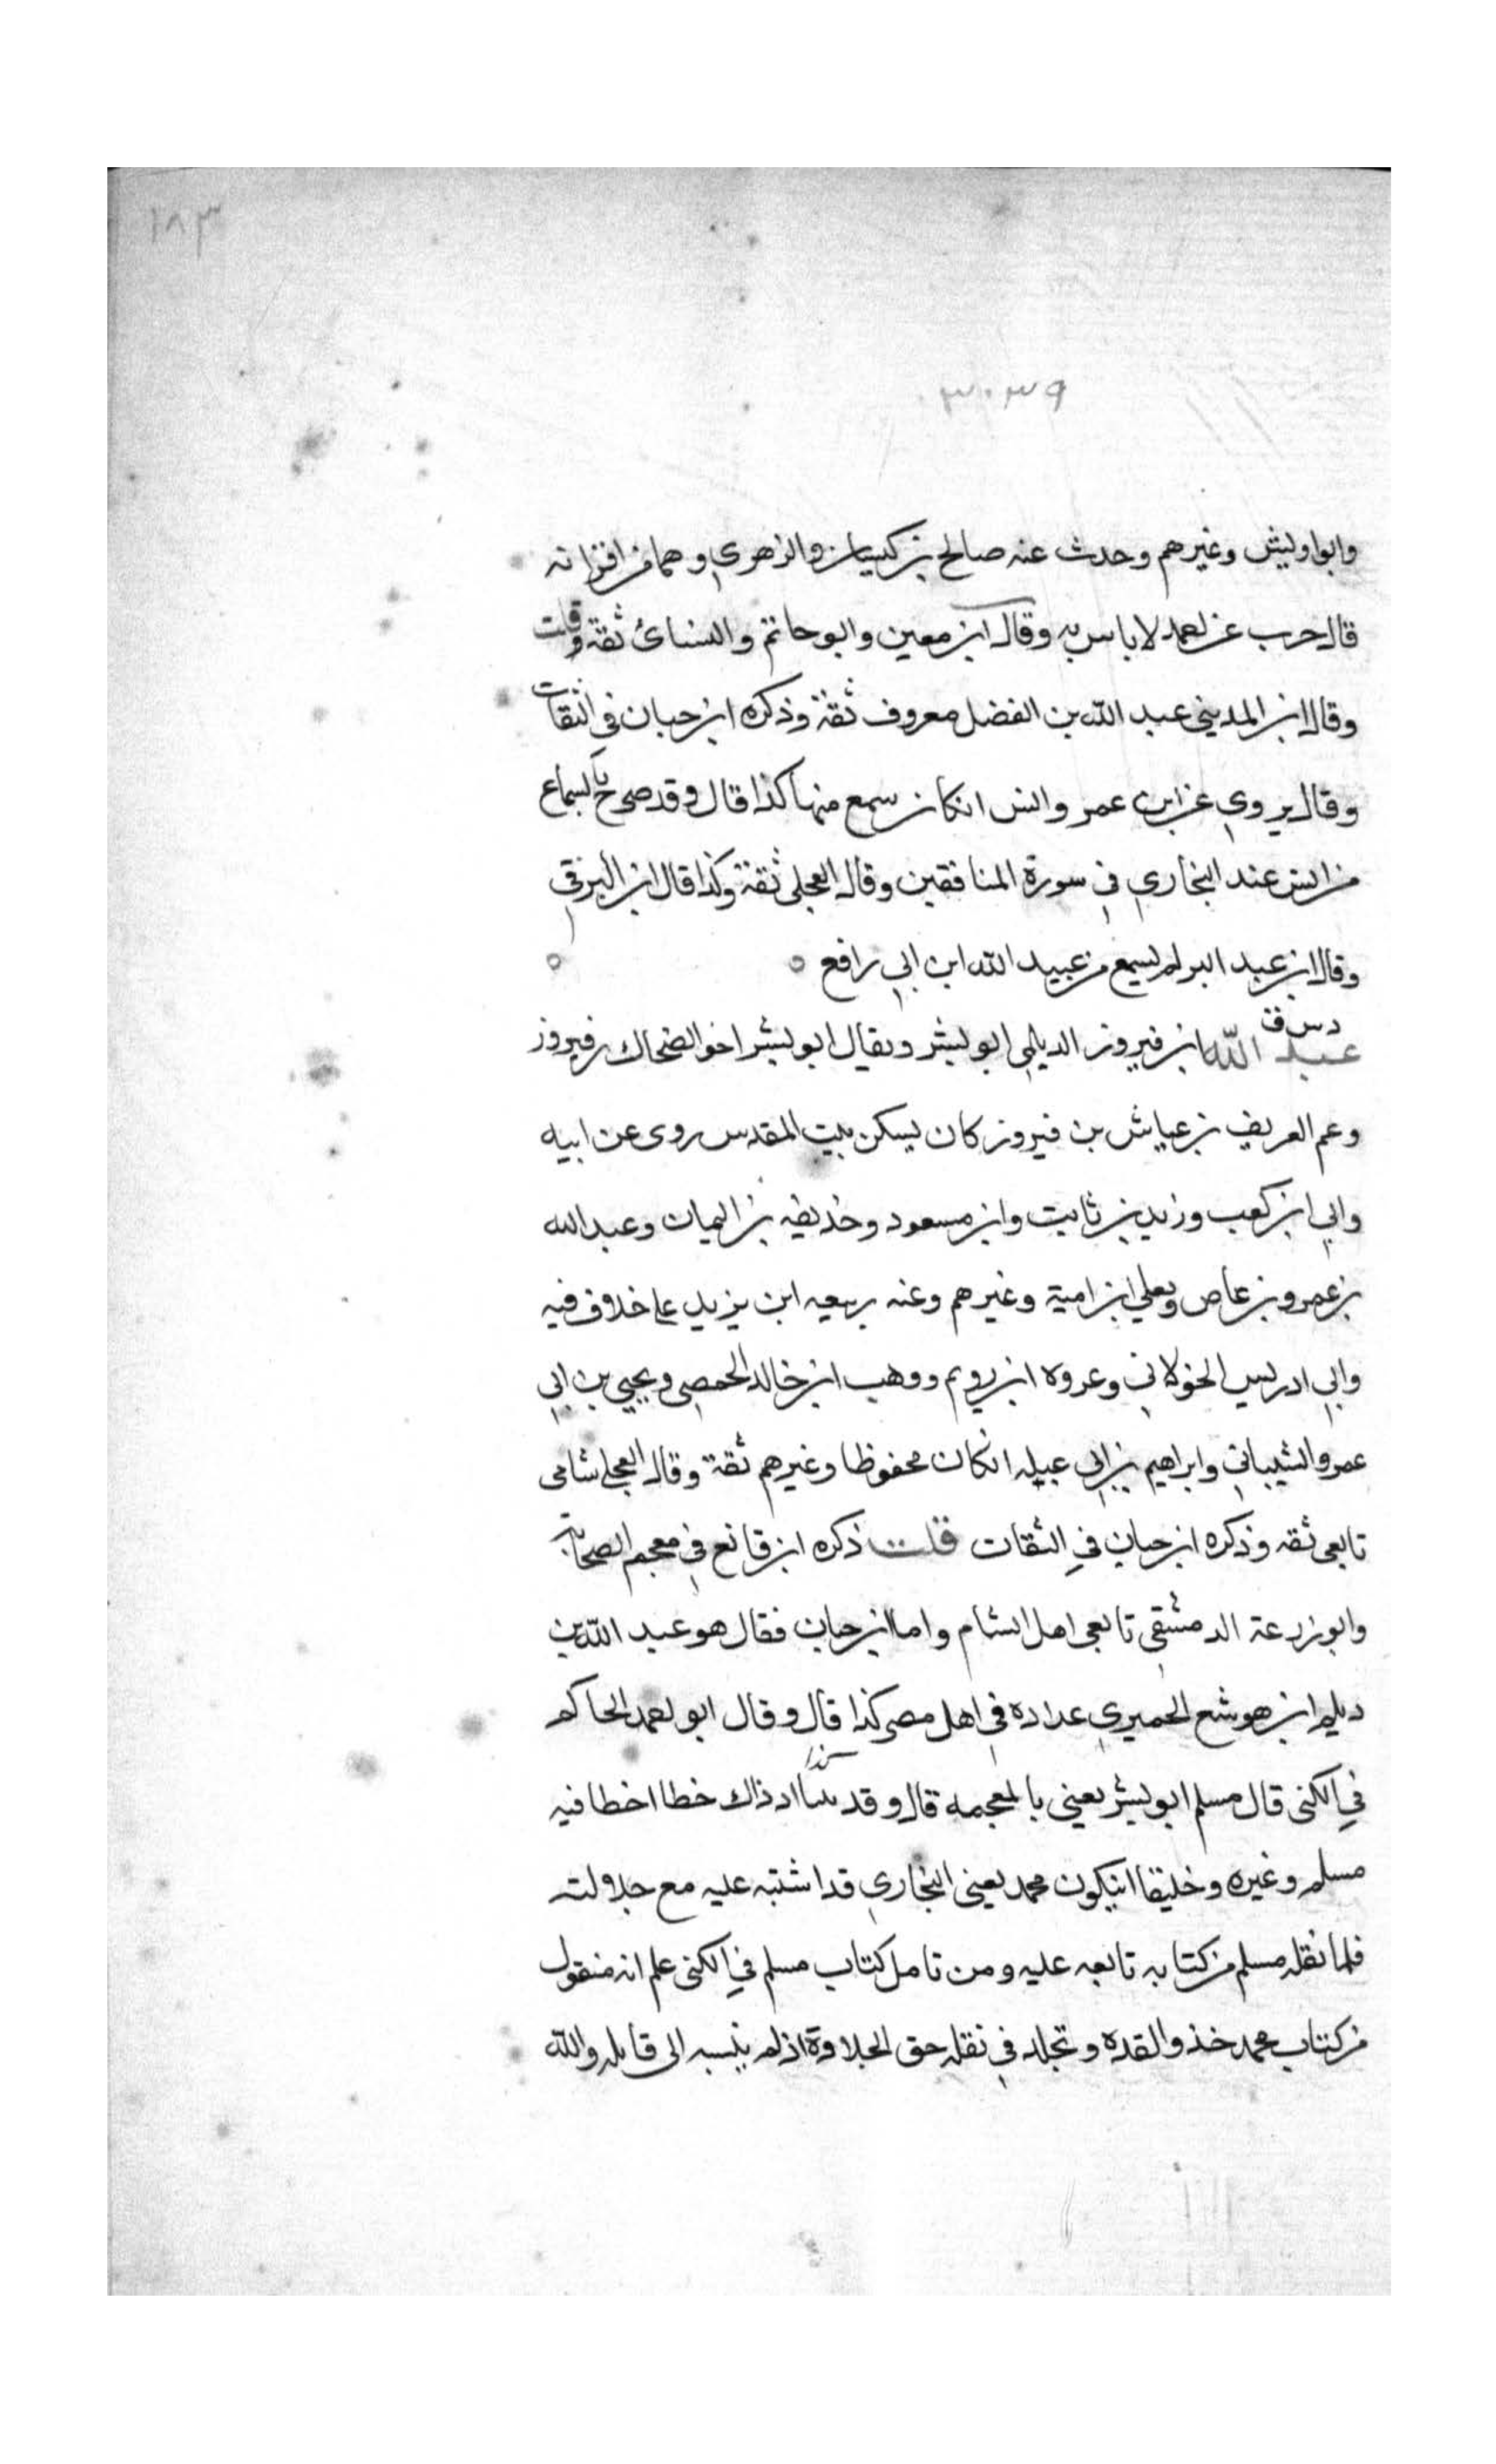 ١٨٣
٣٠٣٩
وابو اويش وغيرهم وحدث عنه صالح بن كيسان والزهري وهما من اقرانه
قال حرب عن احمد لا باس به وقال ابن معين وابو حاتم والنسائ ثقة وقلت
وقال ابن المديني عبد الله بن الفضل معروف ثقة وذكره ابن حبان في الثقات
وقال يروي عن ابن عمر وانس ان كان سمع منهما كذا قال وقد صرح بالسماع
من انس عند البخاري في سورة المنافقين وقال العجلي ثقة وكذا قال ابن البرقي
وقال ابن عبد البر لم يسمع من عبيد الله ابن ابي رافع
د س ق
عبد الله ابن فيروز الديلي ابو بشر ويقال ابو بشر اخو الضحاك بن فيروز
وعم العريف بن عياش بن فيروز كان يسكن بيت المقدس روى عن ابيه
وابي ابن كعب وزيد بن ثابت وابن مسعود وحذيفه بن اليمان وعبد الله
بن عمرو بن عاص ويعلي ابن امية وغيرهم وعنه ربيعه ابن يزيد على خلاف فيه
وابي ادريس الخولاني وعروه ابن رويم ووهب ابن خالد الحمصي ويحيي بن ابي
عمرو الشيباني وابراهيم بن ابي عبله ان كان محفوظا وغيرهم ثقة وقال العجلي شامي
تابعي ثقه وذكره ابن حبان في الثقات قلت ذكره ابن قانع في معجم الصحابة
وابو زرعة الدمشقي تابعي اهل الشام واما ابن حبان فقال هو عبد الله بن
ديلم ابن هوشع الحميري عداده في اهل مصر كذا قال وقال ابو احمد الحاكم
في الكنى قال مسلم ابو بشر يعني بالمعجمه قال وقد بينا ان ذاك خطا اخطا فيه
مسلم وغيره وخليقا ان يكون محمد يعني البخاري قد اشتبه عليه مع جلالته
فلما نقله مسلم من كتابه تابعه عليه ومن تامل كتاب مسلم في الكنى علم انه منقول
من كتاب محمد حذو القده وتجلد في نقله حق الجلادة اذ لم ينسبه الى قايله والله